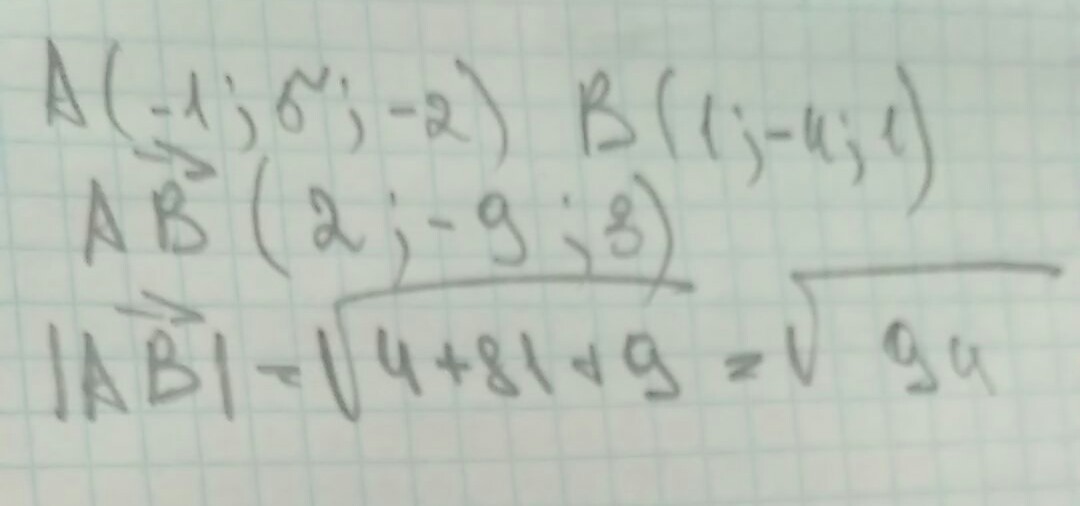 A(-1; 5; -2) B(1; -4; 1)
\overrightarrow{AB} (2; -9; 3)
|\overrightarrow{AB}| = \sqrt{4+81+9} = \sqrt{94}